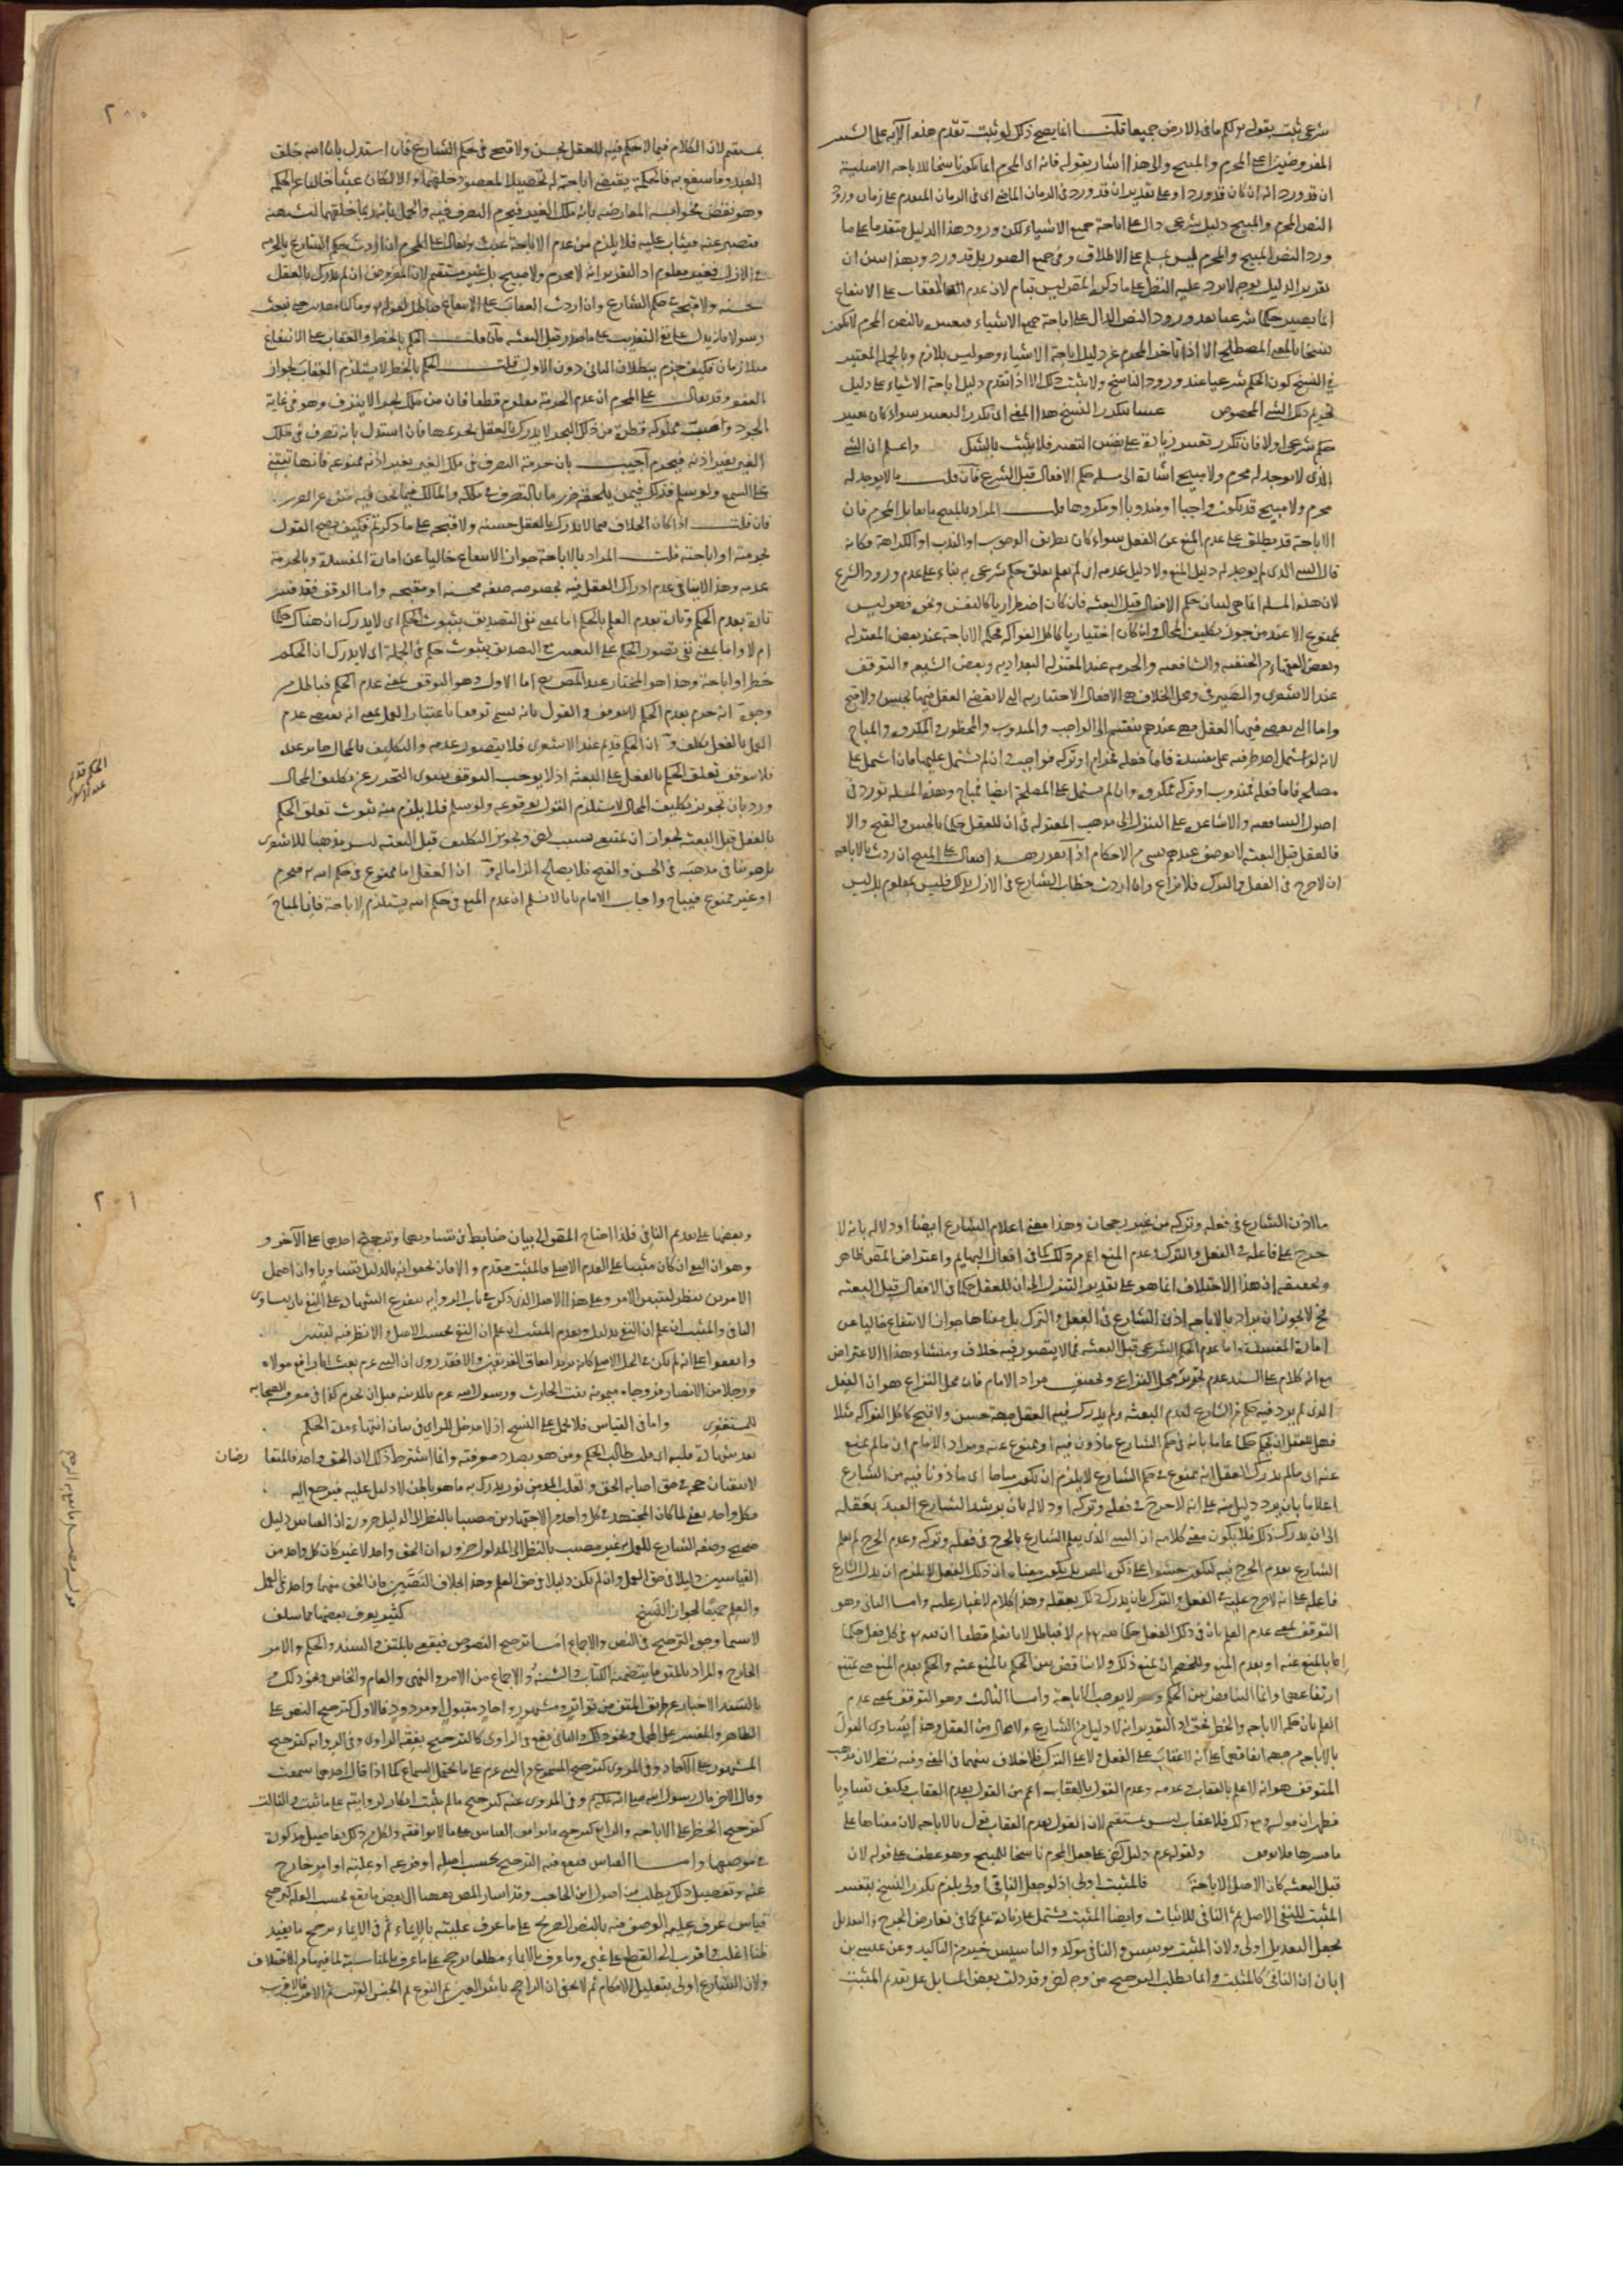 شرعي ثبت بقوله خلق لكم ما في الارض جميعا قلنا انما يصح ذلك لو ثبت تقدم هذه الآية على النصين
المفروضين اعني المحرم والمبيح والى هذا اشار بقوله فانه اي المحرم انما يكون ناسخا للاباحة الاصلية
ان قد ورد انه ان كان قد ورد او على تقدير انه قد ورد في الزمان الماضي اي في الزمان المتقدم على زمان ورود
النص المحرم والمبيح دليل شرعي دال على اباحة جميع الاشياء لكن ورود هذا الدليل متقدما على ما
ورد النص المبيح والمحرم ليس بمسلم على الاطلاق وفي جميع الصور بل قد ورد وبهذا تبين ان
تقرير الدليل بوجه لا يرد عليه النظر على ما ذكره المص ليس بتمام لان عدم العقاب على الانتفاع
انما يصير حكما شرعيا بعد ورود النص الدال على اباحة جميع الاشياء فتغييره بالنص المحرم لا يكون
نسخا بالمعنى المصطلح الا اذا تاخر المحرم عن دليل اباحة الاشياء وهو ليس بلازم وبالجملة المعتبر
في النسخ كون الحكم شرعيا عند ورود الناسخ ولا يثبت ذلك الا اذا تقدم دليل اباحة الاشياء على دليل
تحريم ذلك الشيء المخصوص عنينا بتكرر النسخ هذا المعنى اي تكرر التغيير سواء كان تغيير
حكم شرعي اولا فان تكرر تغيير زيادة على نفس التغيير فلا يثبت بالشك واعلم ان الشيء
الذي لا يوجد له محرم ولا مبيح اشارة الى مسئلة حكم الافعال قبل الشرع فان قلت ما لا يوجد له
محرم ولا مبيح قد يكون واجبا او مندوبا او مكروها قلت المراد بالمبيح ما يقابل المحرم فان
الاباحة قد يطلق على عدم المنع عن الفعل سواء كان بطريق الوجوب او الندب او الكراهة فكانه
قال الشيء الذي لم يوجد له دليل المنع ولا دليل عدمه اي لم يعلم تعلق حكم شرعي به بناء على عدم ورود الشرع
لان هذه المسئلة انما هي لبيان حكم الافعال قبل البعثة فان كان اضطراريا كالتنفس ونحوه فهو ليس
بممنوع الا عند من جوز تكليف المحال وان كان اختياريا كاكل الفواكه فحكمه الاباحة عند بعض المعتزلة
وبعض الفقهاء من الحنفية والشافعية والحرمة عند المعتزلة البغدادية وبعض الشيعة والتوقف
عند الاشعري والصيرفي ومحل الخلاف هي الافعال الاختيارية التي لا يقضي العقل فيها بحسن ولا قبح
واما التي يقضي فيها العقل فهي عندهم ينقسم الى الواجب والمندوب والمحظور والمكروه والمباح
لانه لو اشتمل احد طرفيه على مفسدة فاما فعله فحرام او تركه فواجب وان لم يشتمل عليها فان اشتمل على
مصلحة فاما فعله فمندوب او تركه فمكروه وان لم يشتمل على المصلحة ايضا فمباح وهذه المسئلة تورد في
اصول الشافعية والاشاعرة على التنزل الى مذهب المعتزلة في ان للعقل حكما بالحسن والقبح والا
فالفعل قبل البعثة لا يوصف عندهم بشيء من الاحكام اذا تقرر هذا فيقال على المبيح ان اردت بالاباحة
ان لا حرج في الفعل والترك فلا نزاع وان اردت خطاب الشارع في الازل بذلك فليس بمعلوم بل ليس
٢٠٠
بمستقيم لان الكلام فيما لا حكم فيه للعقل بحسن ولا قبح في حكم الشارع فان استدل بان الله خلق
العبد وما ينتفع به فالحكمة يقتضي اباحته له تحصيلا لمقصود خلقهما والا لكان عبثا خاليا عن الحكمة
وهو نقص فجوابه المعارضة بانه ملك الغير فيحرم التصرف فيه والحل بانه ربما خلقهما ليشتهيه
فيصبر عنه فيثاب عليه فلا يلزم من عدم الاباحة عبث ويقال على المحرم ان اردت حكم الشارع بالحرمة
في الازل فغير معلوم اذ التقدير انه لا محرم ولا مبيح بل غير مستقيم لان المفروض انه لم يدرك بالعقل
حسنه ولا قبحه في حكم الشارع وان اردت العقاب على الانتفاع فباطل لقوله تعالى وما كنا معذبين حتى نبعث
رسولا فانه يدل على نفي التعذيب على ما صدر قبل البعثة فان قلت الحكم بالحظر والعقاب على الانتفاع
متلازمان فكيف جزم ببطلان الثاني دون الاول قلت الحكم بالخطر لا يستلزم العقاب لجواز
العفو وقد يقال على المحرم ان عدم الحرمة معلوم قطعا فان من ملك بحرا لا ينزف وهو في غاية
الجود واخذ مملوكه قطرة من ذلك البحر لا يدرك بالعقل تحريمها فان استدل بانه تصرف في ملك
الغير بغير اذنه فيحرم اجيب بان حرمة التصرف في ملك الغير بغير اذنه ممنوعة فانها تبتني
على السمع ولو سلم فذلك فيمن يلحقه ضرر ما بالتصرف في ملكه والمالك فيما نحن فيه منزه عن الضرر
فان قلت اذا كان الخلاف فيما لا يدرك بالعقل حسنه ولا قبحه على ما ذكرتم فكيف يصح القول
بحرمته او اباحته قلت المراد بالاباحة جواز الانتفاع خاليا عن امارة المفسدة وبالحرمة
عدمه وهذا لا ينافي عدم ادراك العقل فيه بخصوصه صفة محسنة او مقبحة واما الوقف فقد فسر
تارة بعدم الحكم وتارة بعدم العلم بالحكم اما بمعنى نفي التصديق بثبوت الحكم اي لا يدرك ان هناك حكما
ام لا واما بمعنى نفي تصور الحكم على التعيين مع التصديق بثبوت حكم في الجملة اي لا يدرك ان الحكم
حظر او اباحة وهذا هو المختار عند المص رح اما الاول وهو التوقف بمعنى عدم الحكم فباطل من
وجوه انه جزم بعدم الحكم لا توقف والقول بانه يسمى توقفا باعتبار العمل بمعنى انه يقتضي عدم
العمل بالفعل تكلف و ان الحكم قديم عند الاشعري فلا يتصور عدمه والتكليف بالمحال جائز عنده
فلا يتوقف تعلق الحكم بالفعل على البعثة اذ لا يوجب التوقف سوى التحرز عن تكليف المحال
ورد بان تجويز تكليف المحال لا يستلزم القول بوقوعه ولو سلم فلا يلزم منه ثبوت تعلق الحكم
بالفعل قبل البعثة لجواز ان يمتنع بسبب آخر وتجويز التكليف قبل البعثة ليس مذهبا للاشعري
بل هو ينافي مذهبه في الحسن والقبح فلا يصلح الزاما له و ان الفعل اما ممنوع في حكم الله تعالى فيحرم
او غير ممنوع فيباح واجاب الامام بانا لا نسلم ان عدم المنع في حكم الله يستلزم الاباحة فان المباح
الحكم قديم
عند الاشعري
ما اذن الشارع في فعله وتركه من غير رجحان وهذا معنى اعلام الشارع ايضا او دلالة بانه لا
حرج على فاعله في الفعل والترك وعدم المنع اعم من ذلك كما في افعال البهايم واعتراض المص ظاهر
وتحقيقه ان هذا الاختلاف انما هو على تقدير التنزل الى ان للعقل حكما في الافعال قبل البعثة
فح لا يجوز ان يراد بالاباحة اذن الشارع في الفعل والترك بل معناها جواز الانتفاع خاليا عن
امارة المفسدة واما عدم الحكم الشرعي قبل البعثة فمما لا يتصور فيه خلاف ومنشاء هذا الاعتراض
مع انه كلام على السند عدم تحرير محل النزاع وتحقيق مراد الامام فان محل النزاع هو ان الفعل
الذي لم يرد فيه حكم من الشارع لعدم البعثة ولم يدرك فيه العقل جهة حسن ولا قبح كاكل الفواكه مثلا
فهل للعقل ان يحكم حكما عاما بانه في حكم الشارع ماذون فيه او ممنوع عنه ومراد الامام ان ما لم يمنع
عنه اي ما لم يدرك العقل انه ممنوع في حكم الشارع لا يلزم ان يكون مباحا اي ماذونا فيه من الشارع
اعلاما بان يرد دليل منه على انه لا حرج في فعله وتركه او دلالة بان يرشد الشارع العبد بعقله
الى ان يدرك ذلك فلا يكون معنى كلامه ان الشيء الذي يعلم الشارع بالحرج في فعله وتركه وعدم الحرج لم يعلم
الشارع بعدم الحرج فيه ليكون حشوا على ما ذكره المص بل يكون معناه ان ذلك الفعل لا يلزم ان يدل الشارع
فاعله على انه لا حرج عليه في الفعل والترك بان يدرك ذلك بعقله وهذا كلام لا غبار عليه واما الثاني وهو
التوقف بمعنى عدم العلم بان في ذلك الفعل حكما لله تعالى ام لا فباطل لانا نعلم قطعا ان لله تعالى في كل فعل حكما
اما بالمنع عنه او بعدم المنع وللخصم ان يمنع ذلك ولا تناقض بين الحكم بالمنع عنه والحكم بعدم المنع حتى يمتنع
ارتفاعهما وانما التناقض بين الحكم وعدمه لا يوجب الاباحة واما الثالث وهو التوقف بمعنى عدم
العلم بان حكمه الاباحة والخطر فحق اذ التقدير انه لا دليل من الشارع ولا مجال من العقل وهذا يساوي القول
بالاباحة من جهة اتفاقهم على انه لا عقاب على الفعل ولا على الترك فلا خلاف بينهما في المعنى وفيه نظر لان مذهب
المتوقف هو انه لا علم بالعقاب وعدمه وعدم القول بالعقاب اعم من القول بعدم العقاب فكيف تساويا
فظهر ان قوله ومع ذلك فلا عقاب ليس بمستقيم لان القول بعدم العقاب قول بالاباحة لان معناها على
ما فسرها فلا توقف ولقوله عم دليل آخر على جعل المحرم ناسخا للمبيح وهو عطف على قوله لان
قبل البعثة كان الاصل الاباحة فالمثبت اولى اذ لو جعل النافي اولى يلزم تكرر النسخ بتغيير
المثبت للنفي الاصلي ثم النافي للاثبات وايضا المثبت يشتمل على زيادة علم كما في تعارض الجرح والتعديل
يجعل التعديل اولى ولان المثبت مؤسس والنافي مؤكد والتاسيس خير من التاكيد وعن عيسى بن
ابان ان النافي كالمثبت وانما يطلب الترجيح من وجه آخر وقد دلت بعض المسايل على تقديم المثبت
٢٠١
وبعضها على تقديم النافي فلذا احتاج المص الى بيان ضابط في تساويهما وترجيح احدهما على الآخر و
وهو ان النفي ان كان مبنيا على العدم الاصلي فالمثبت مقدم والا فان تحقق انه بالدليل تساويا وان احتمل
الامرين ينظر ليتبين الامر وعلى هذا الاصل الذي ذكره في باب الرواية يتفرع الشهادة على النفي بان يساوى
النافي والمثبت ان علم ان النفي بدليل ويقدم المثبت ان علم ان النفي بحسب الاصل والا نظر فيه ليتبين
واتفقوا على انه لم يكن في الحل الاصلي كانه يريد اتفاق الفريقين والا فقد روي ان النبي عم بعث ابا رافع مولاه
ورجلا من الانصار فزوجاه ميمونة بنت الحارث ورسول الله عم بالمدينة قبل ان يحرم كذا في معرفة الصحابة
للمستغفري واما في القياس فلا يحمل على النسخ اذ لا مدخل للراي في بيان انتهاء مدة الحكم
بعد شهادة قلبه اي قلب طالب الحكم ومن هو بصدد معرفته وانما اشترط ذلك لان الحق واحد فالمتعا
رضان
لا يتفقان حجة في حق اصابة الحق ولقلب المؤمن نور يدرك به ما هو باطن لا دليل عليه فيرجع اليه
فكل واحد يعني لما كان المجتهد في كل واحد من الاجتهادين مصيبا بالنظر الى الدليل ضرورة ان القياس دليل
صحيح وضعه الشارع للعمل به غير مصيب بالنظر الى المدلول ضرورة ان الحق واحد لا غير كان كل واحد من
القياسين دليلا في حق العمل وان لم يكن دليلا في حق العلم وهذا بخلاف النصين فان الحق منهما واحد في العمل
والعلم جميعا لجواز النسخ كثير يعرف بعضها مما سلف
لا سيما وجوه الترجيح في النص والاجماع اما ترجيح النصوص فيقع بالمتن والسند والحكم والامر
الخارج والمراد بالمتن ما يتضمنه الكتاب والسنة والاجماع من الامر والنهي والعام والخاص ونحو ذلك و
بالسند الاخبار عن طريق المتن من تواتر ومشهور واحاد مقبول او مردود فالاول كترجيح النص على
الظاهر والمفسر على المجمل ونحو ذلك والثاني يقع في الراوي كالترجيح بفقه الراوي وفي الرواية كترجيح
المشهور على الآحاد وفي المروي كترجيح المسموع من النبي عم على ما يحتمل السماع كما اذا قال احدهما سمعت
وقال الآخر قال رسول الله صلى الله عليه وسلم وفي المروي عنه كترجيح ما لم يثبت انكار لروايته على ما ثبت والثالث
كترجيح الحظر على الاباحة والرابع كترجيح ما يوافق القياس على ما لا يوافقه ولكل من ذلك تفاصيل مذكورة
في موضعها واما القياس فيقع فيه الترجيح بحسب اصله او فرعه او علته او امر خارج
عنه وتفصيل ذلك يطلب من اصول ابن الحاجب وقد اشار المص ههنا الى بعض ما يقع بحسب العلة كترجيح
قياس عرف علية الوصف فيه بالنص الصريح على ما عرف عليته بالايماء ثم في الايماء يرجح ما يفيد
ظنا اغلب واقرب الى القطع على غيره وما عرف بالايماء مطلقا يرجح على ما عرف بالمناسبة لما فيها من الاختلاف
ولان الشارع اولى بتعليل الاحكام ثم لا يخفى ان الراجح تاثير العين ثم النوع ثم الجنس القريب ثم الاقرب فالاقرب